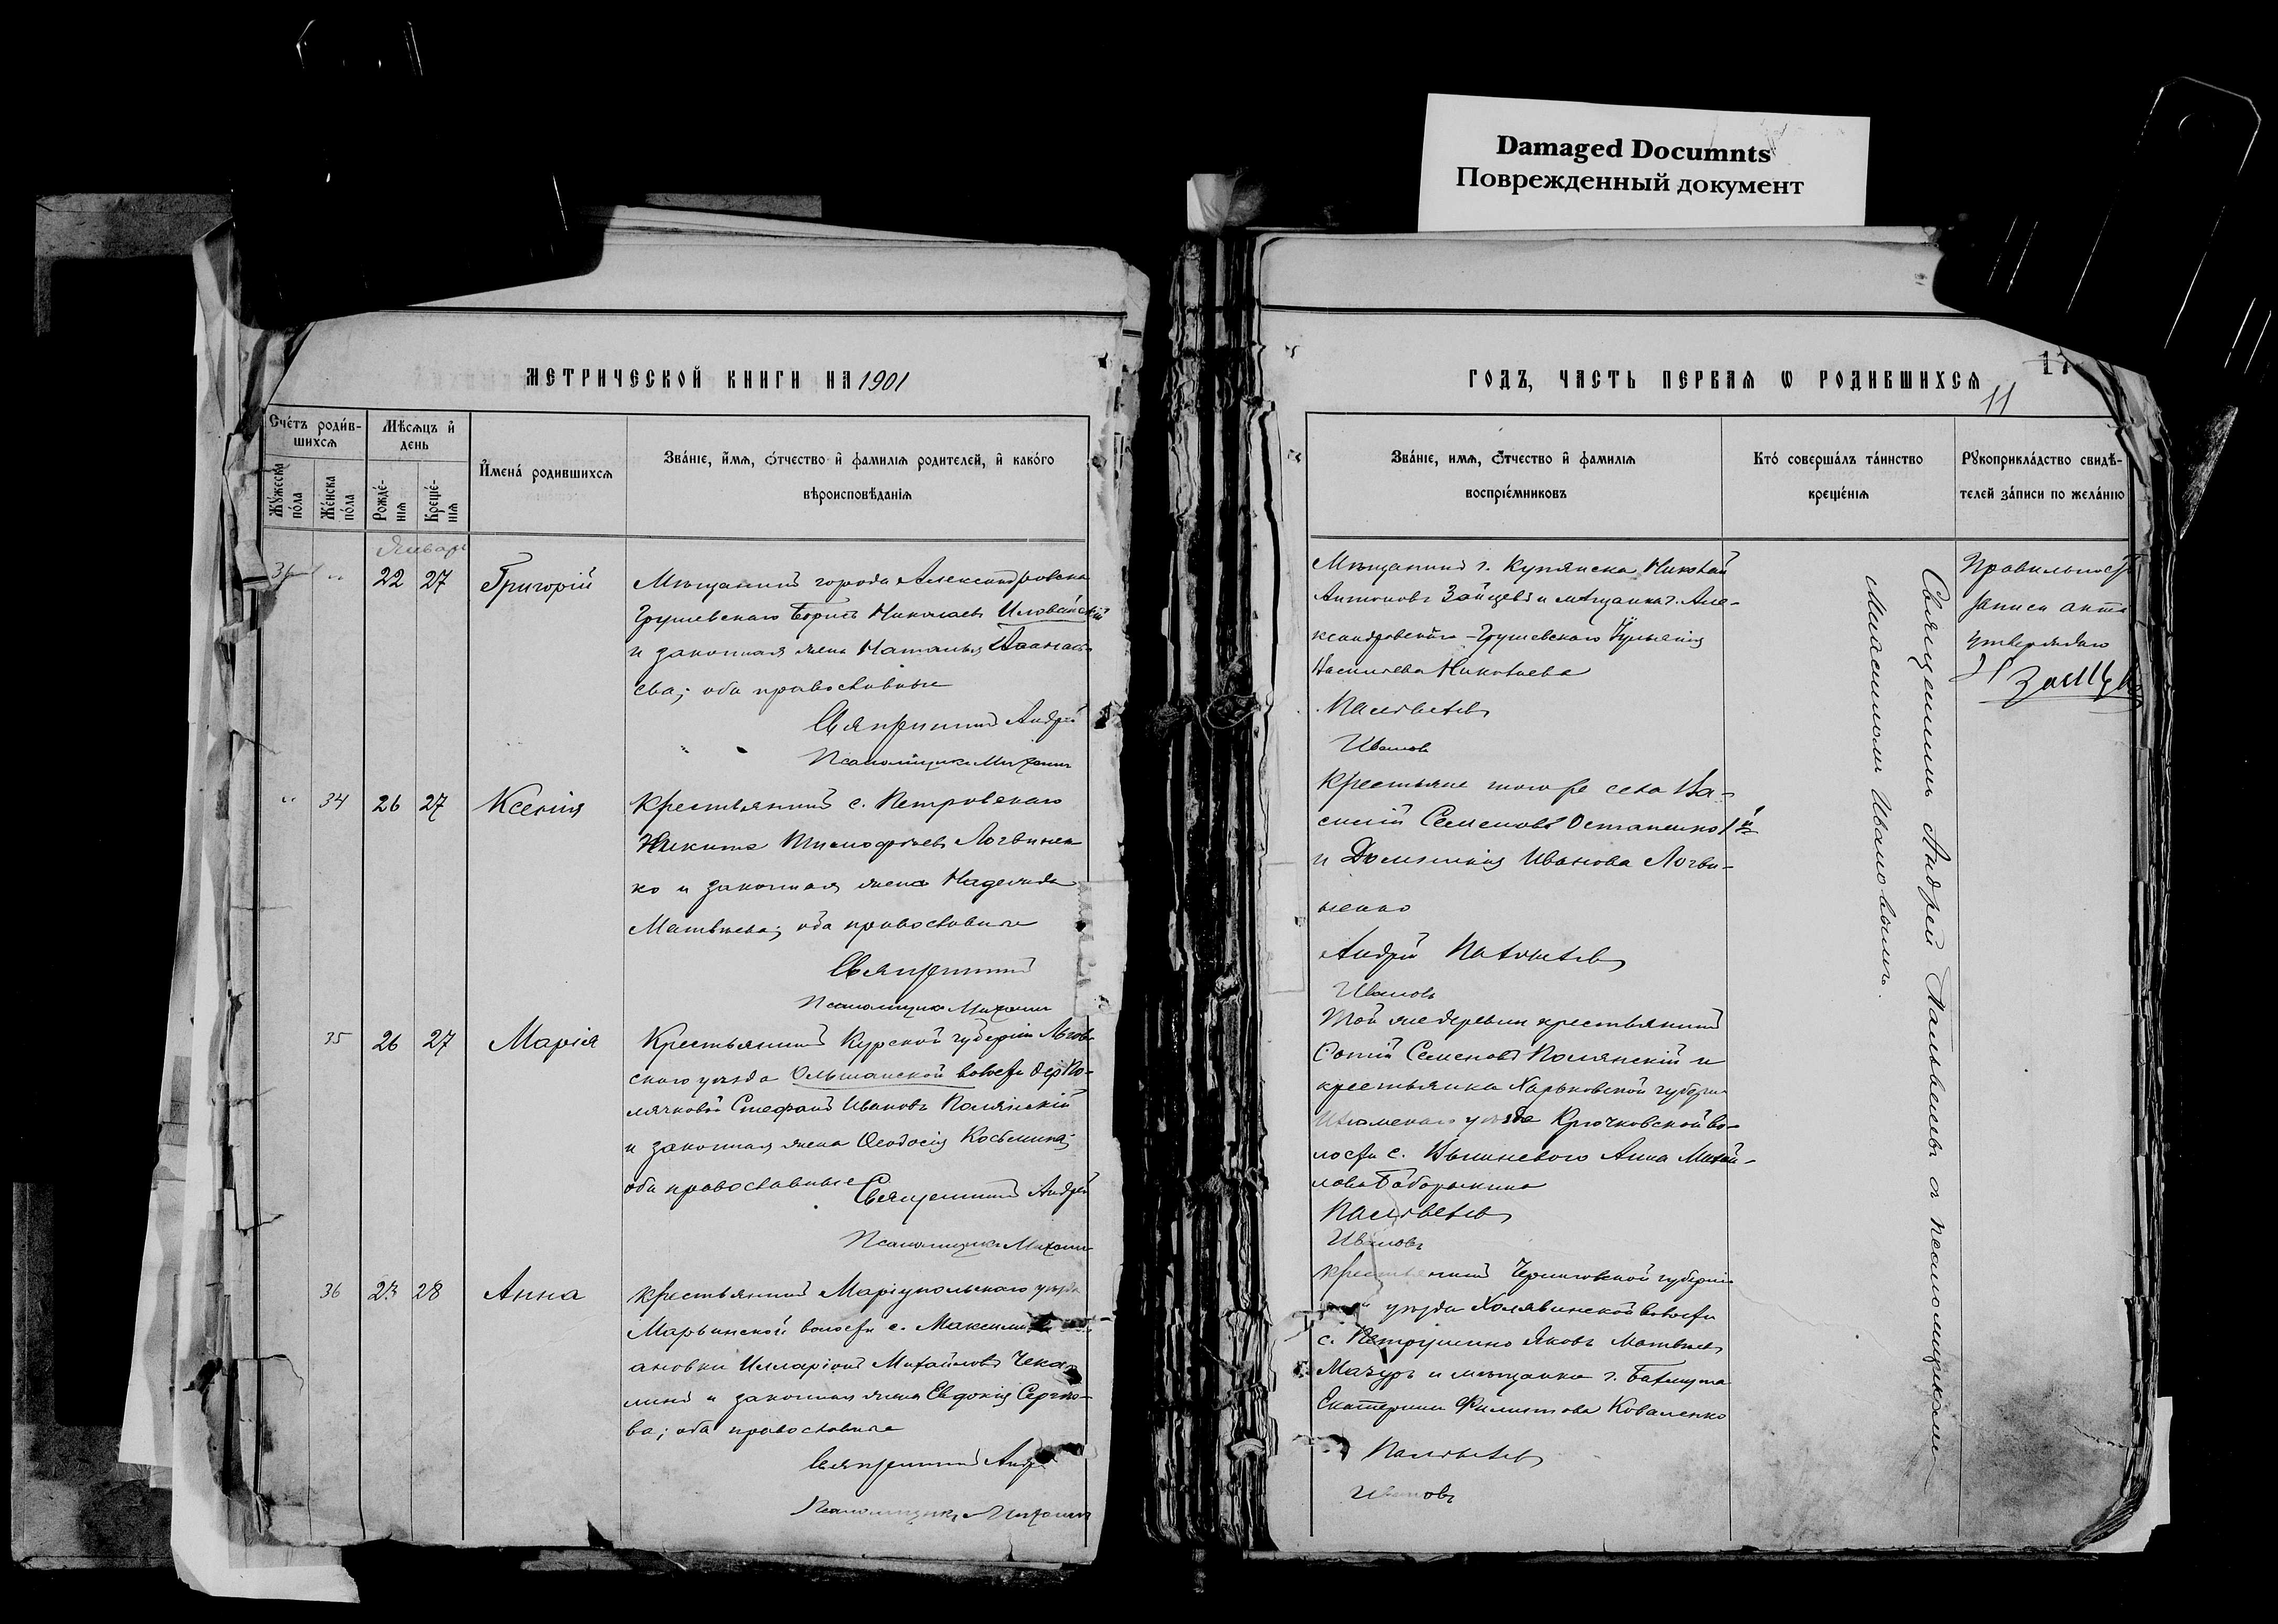 Damaged Documnts
Поврежденный документ
МЕТРИЧЕСКОЙ КНИГИ НА 1901
Счétъ роди́в-
шихсѧ
Мѣсѧцъ и҆
день
Мꙋ́жеска
по́ла
Же́нска
по́ла
Рожде́-
нїѧ
Креще́-
нїѧ
И҆мена̀ родившихсѧ
Зва́нїе, и҆́мѧ, ѻ҆́тчество и҆ фамилїѧ родителей, и҆ како́го
вѣроисповѣ́данїѧ
Январь
22 27 Григорій
Мѣщанинъ города Александровска
Грушевскаго Борисъ Николаевъ Иловайскій
и законная жена Наталья Аѳанась-
ева; оба православные
Священникъ Андрей
Псаломщикъ Михаилъ
" 34 26 27 Ксенія
Крестьянинъ с. Петровскаго
Никита Тимофѣевъ Логвинен
ко и законная жена Надежда
Матвѣева; оба православные
Священникъ
Псаломщикъ Михаилъ
35 26 27 Марія
Крестьянинъ Курской губерніи Льгов-
скаго уѣзда Ольшанской волости дер. По-
лячковой Стефанъ Ивановъ Полянскій
и законная жена Ѳеодосія Косьмина;
оба православные
Священникъ Андрей
Псаломщикъ Михаилъ
36 23 28 Анна
Крестьянинъ Маріупольскаго уѣзда
Марьинской волости с. Максимили
ановки Илларіонъ Михайловъ Чека
линъ и законная жена Евдокія Сергѣе-
ва; оба православные
Священникъ Андрей
Псаломщикъ Михаилъ
ГОДЪ, ЧАСТЬ ПЕРВАѦ Ѡ РОДИВШИХСѦ
17
11
Зва́нїе, имѧ, ѻ҆́тчество и҆ фамилїѧ
воспрїе́мниковъ
Кто́ соверша́лъ та́инство
креще́нїѧ
Рꙋкоприкла́дство свидѣ́-
телей за́писи по жела́нїю
Мѣщанинъ г. Купянска Николай
Антоновъ Зайцевъ и мѣщанка г. Але-
ксандровскаго-Грушевскаго
Васильева Николаева
Пальвелевъ
Ивановъ
Крестьяне того же села Ва-
силій Семеновъ Остапенко 1й
и Домникія Иванова Логви-
ненко
Андрей Пальвелевъ
Ивановъ
Той же деревни крестьянинъ
Семеновъ Полянскій и
крестьянка Харьковской губерніи
Изюмскаго уѣзда Крючковской во-
лости с. Анна Михай-
лова Баборыкина
Пальвелевъ
Ивановъ
Крестьянинъ Черниговской губерніи
уѣзда Холявинской волости
с. Петрушино Яковъ Матвѣевъ
Мазуръ и мѣщанка г. Бахмута
Екатерина Филиппова Коваленко
Пальвелевъ
Ивановъ
Священникъ Андрей Пальвелевъ съ псаломщикомъ
Михаиломъ Ивановымъ.
Правильность
записи акта
утверждаю
Н Зайцевъ